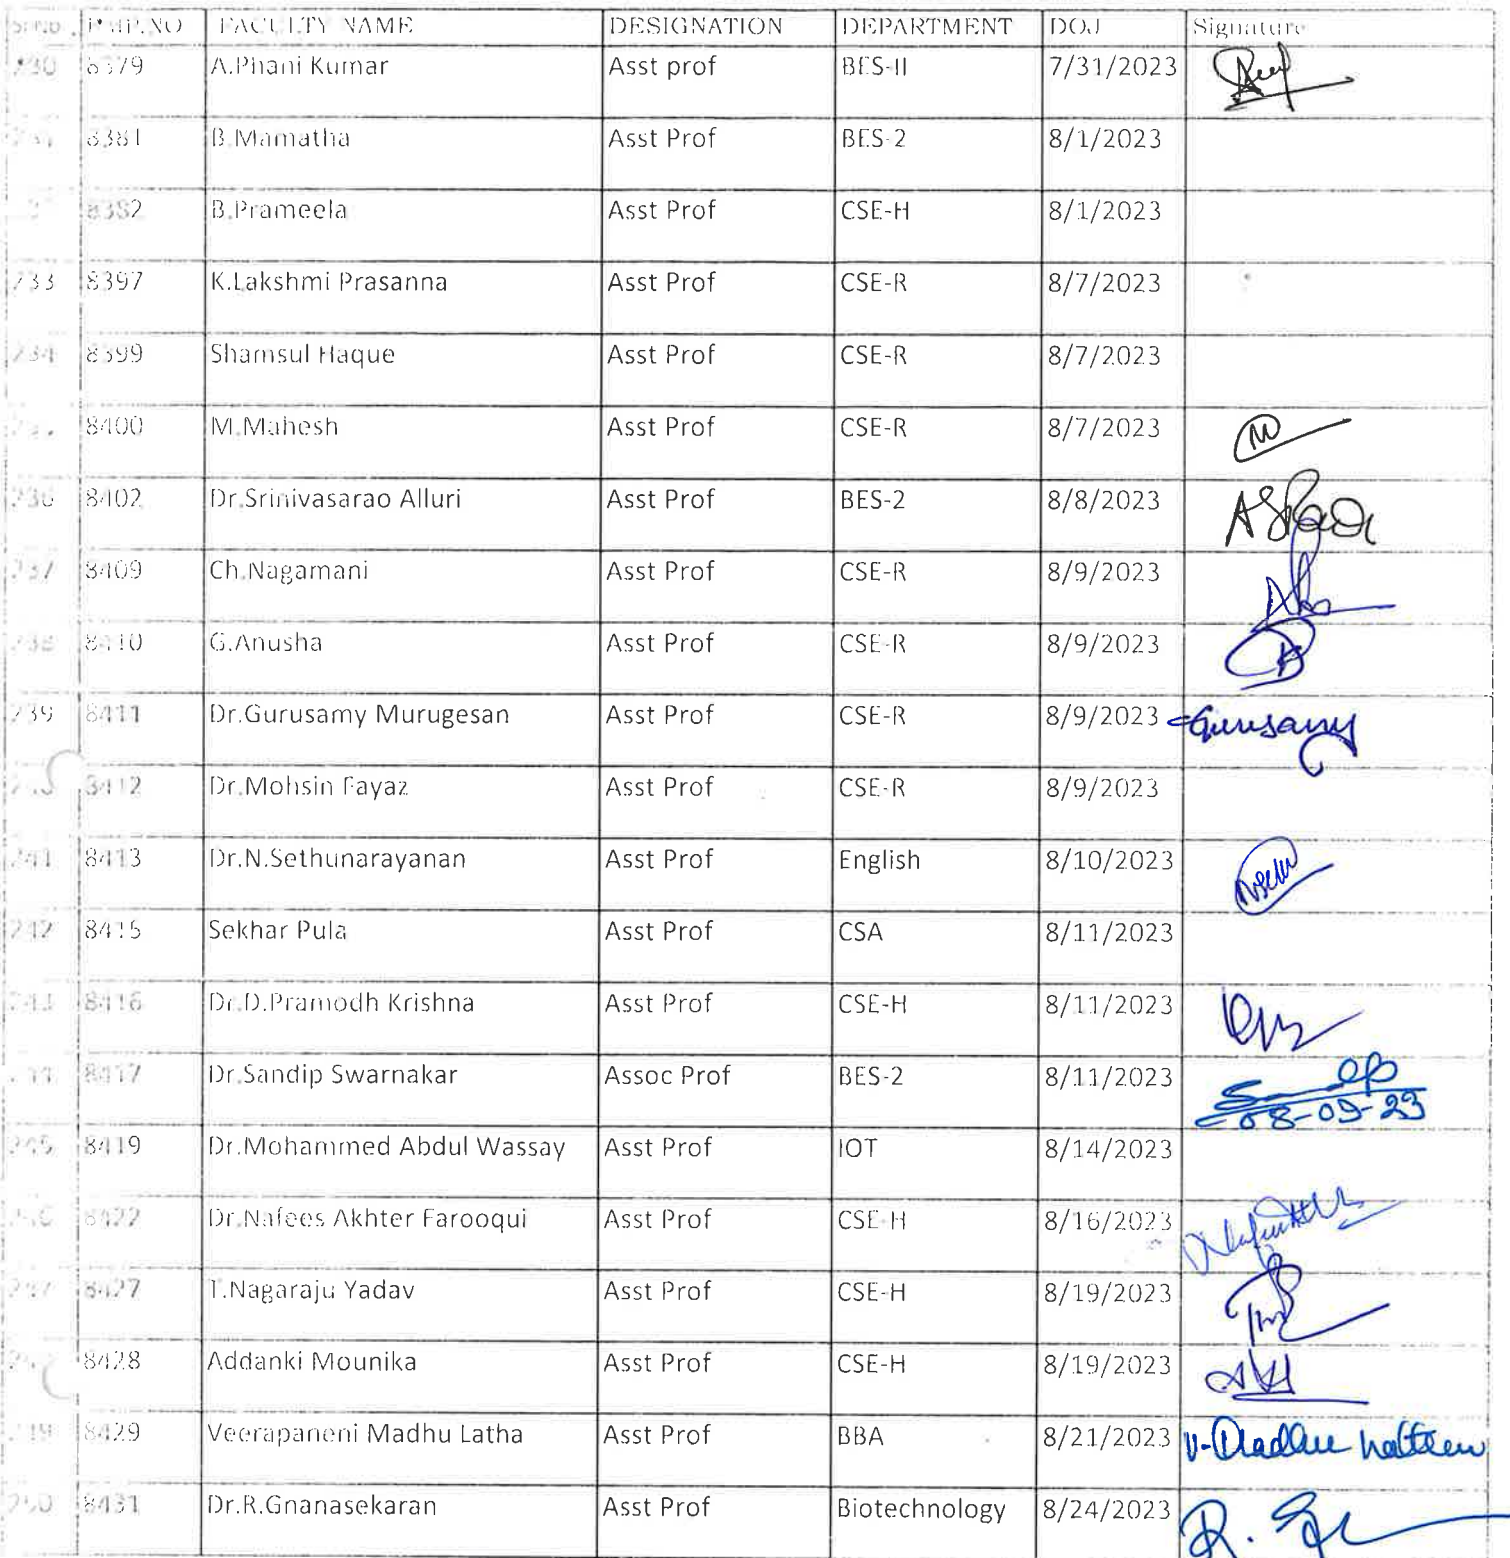 FACULTY NAME DESIGNATION DEPARTMENT DOJ Signature
8379 A.Phani Kumar Asst prof BES-II 7/31/2023
8381 B.Mamatha Asst Prof BES-2 8/1/2023
8382 B.Prameela Asst Prof CSE-H 8/1/2023
233 8397 K.Lakshmi Prasanna Asst Prof CSE-R 8/7/2023
234 8399 Shamsul Haque Asst Prof CSE-R 8/7/2023
8400 M.Mahesh Asst Prof CSE-R 8/7/2023
236 8402 Dr.Srinivasarao Alluri Asst Prof BES-2 8/8/2023
237 8409 Ch.Nagamani Asst Prof CSE-R 8/9/2023
238 8410 G.Anusha Asst Prof CSE-R 8/9/2023
239 8411 Dr.Gurusamy Murugesan Asst Prof CSE-R 8/9/2023 Gurusamy
8412 Dr.Mohsin Fayaz Asst Prof CSE-R 8/9/2023
241 8413 Dr.N.Sethunarayanan Asst Prof English 8/10/2023
242 8415 Sekhar Pula Asst Prof CSA 8/11/2023
243 8416 Dr.D.Pramodh Krishna Asst Prof CSE-H 8/11/2023
8417 Dr.Sandip Swarnakar Assoc Prof BES-2 8/11/2023 08-09-23
245 8419 Dr.Mohammed Abdul Wassay Asst Prof IOT 8/14/2023
8422 Dr.Nafees Akhter Farooqui Asst Prof CSE-H 8/16/2023
247 8427 T.Nagaraju Yadav Asst Prof CSE-H 8/19/2023
8428 Addanki Mounika Asst Prof CSE-H 8/19/2023
8429 Veerapaneni Madhu Latha Asst Prof BBA 8/21/2023
250 8431 Dr.R.Gnanasekaran Asst Prof Biotechnology 8/24/2023